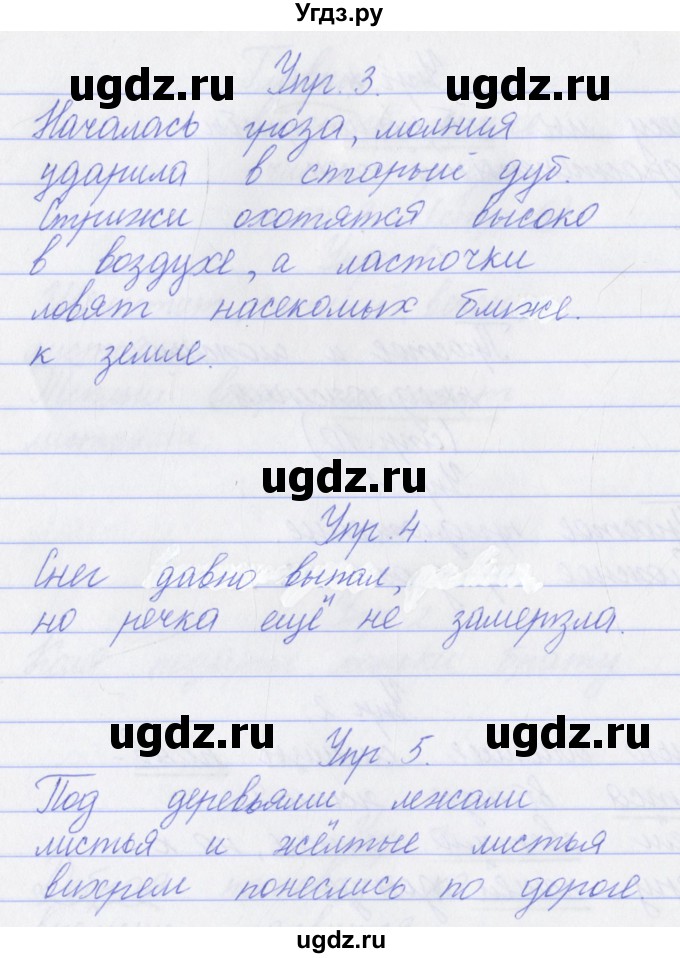 Угдз.ру
ugdz.ru ugdz.ru
Упр. 3.
Началась гроза, молния
ударила в старый дуб.
Стрижи охотятся высоко
в воздухе, а ласточки
ловят насекомых ближе.
к земле.
ugdz.ru
Упр. 4.
Снег давно выпал,
но речка ещё не замерзла.
ugdz.ru ugdz.ru
Упр. 5.
Под деревьями лежали
листья и жёлтые листья
вихрем понеслись по дороге.
ugdz.ru